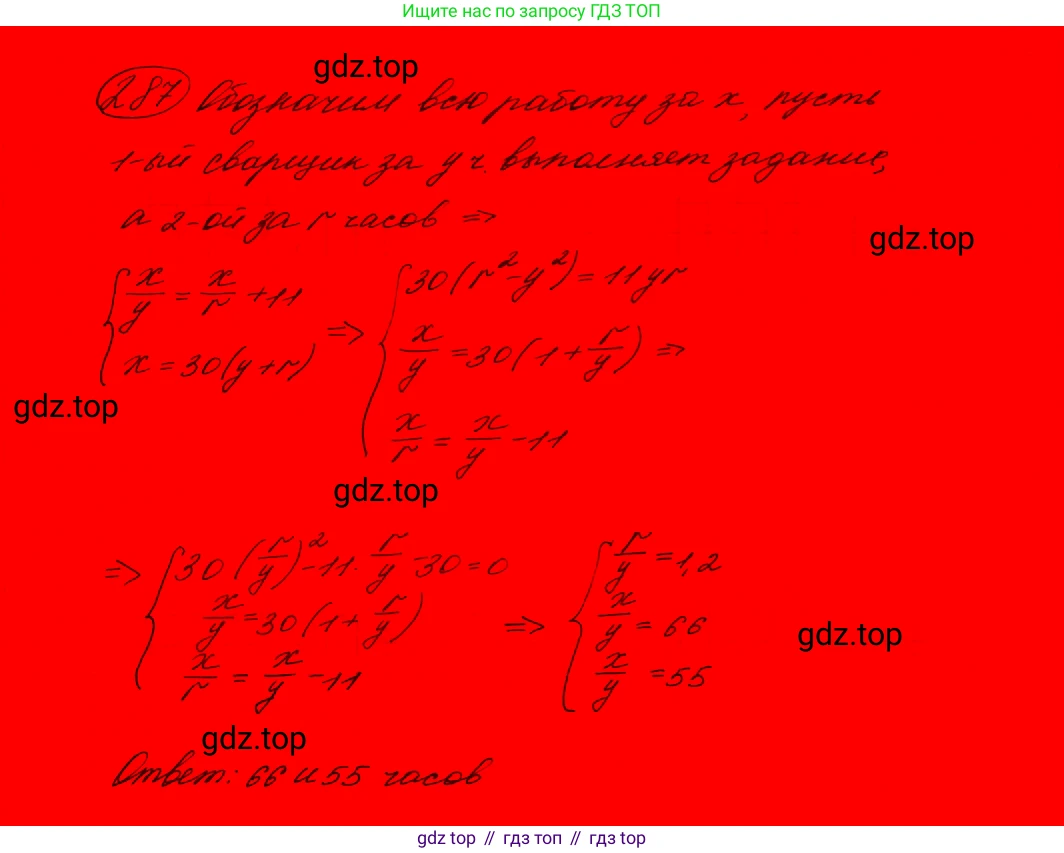 Ищите нас по запросу ГДЗ ТОП
gdz.top
287 Обозначим всю работу за x, пусть
1-ый сварщик за y ч. выполняет задание,
а 2-ой за r часов =>
gdz.top
{ x/y = x/r + 11
x = 30(y+r)
=> { 30(r²-y²) = 11yr
x/y = 30(1 + r/y) =>
x/r = x/y - 11
gdz.top
gdz.top
=> { 30(r/y)² - 11 · r/y - 30 = 0
x/y = 30(1 + r/y)
x/r = x/y - 11
=> { r/y = 1,2
x/y = 66
x/y = 55
gdz.top
gdz.top
Ответ: 66 и 55 часов
gdz top // гдз топ // gdz top